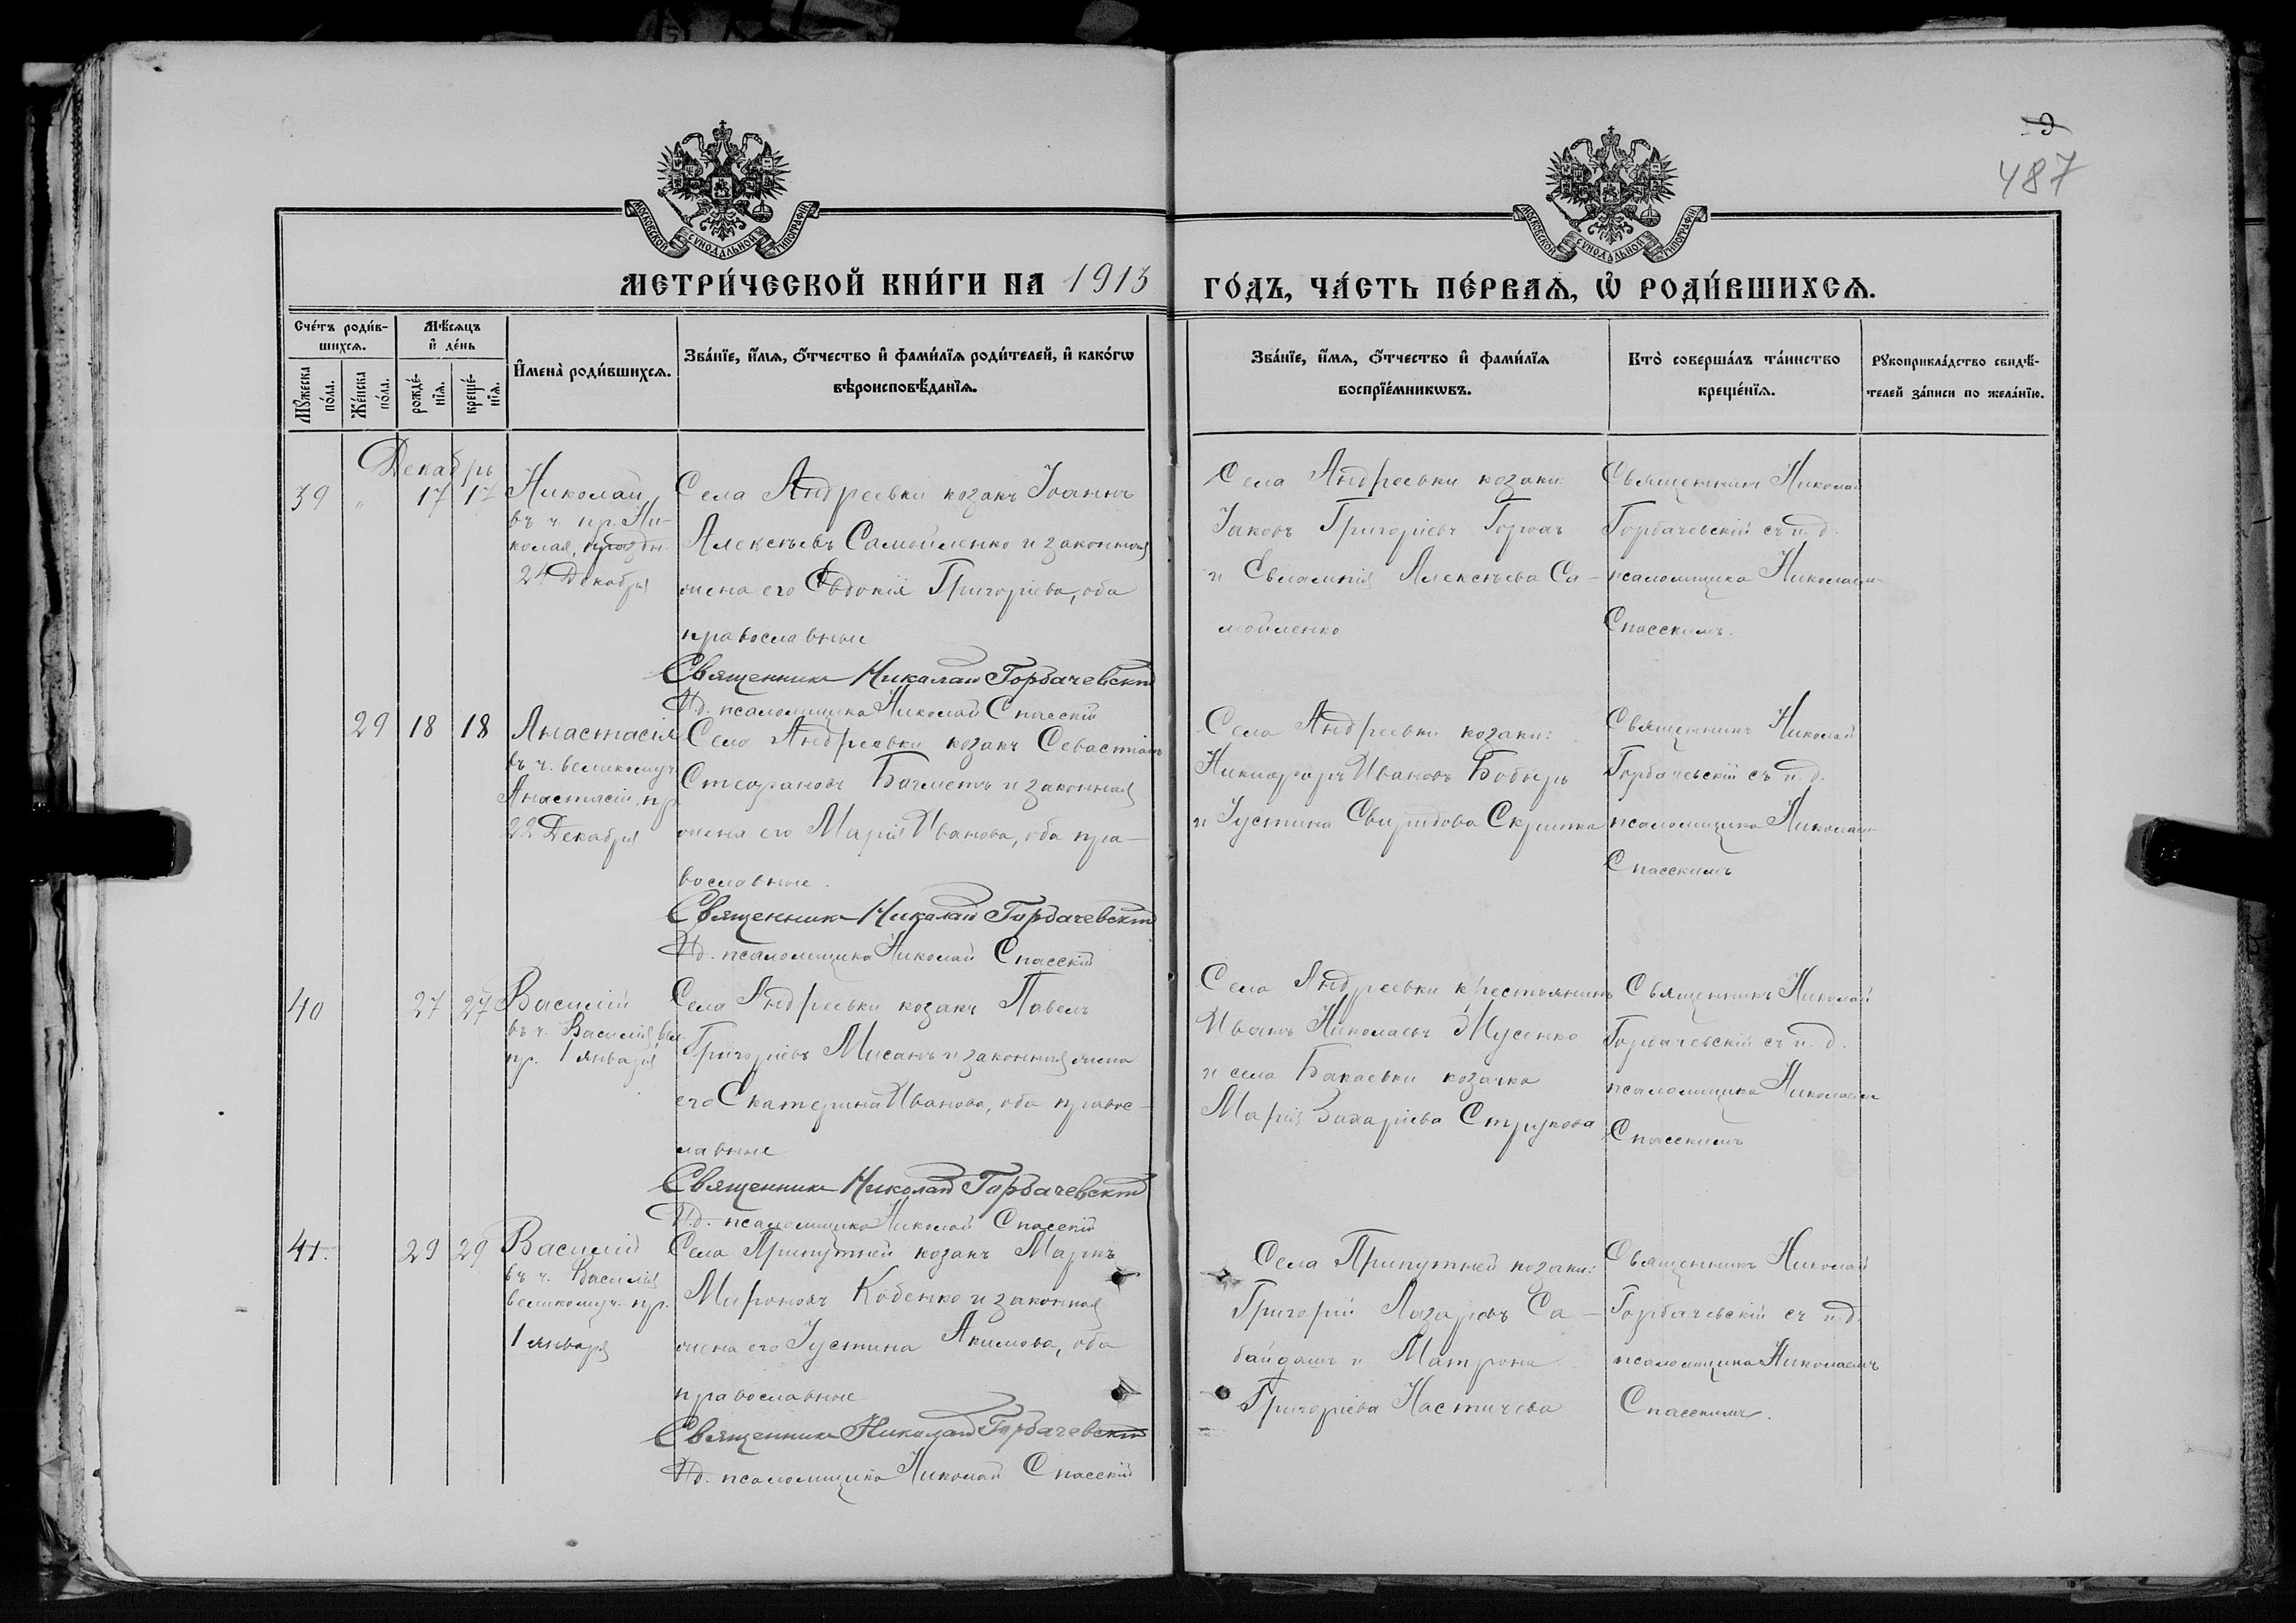 487
МОСКОВСКОЙ СУНОДАЛЬНОЙ ТИПОГРАФІИ
МОСКОВСКОЙ СУНОДАЛЬНОЙ ТИПОГРАФІИ
МЕТРИ́ЧЕСКОЙ КНИ́ГИ НА 1913 ГО́ДЪ, ЧА́СТЬ ПЕ́РВАѦ, Ѡ҆ РОДИ́ВШИХСѦ.
Сче́тъ роди́в-
шихсѧ.
Мꙋ́жеска по́ла.
Же́нска по́ла.
Мѣ́сѧцъ
и҆ де́нь
рожде́-
нїѧ.
креще́-
нїѧ.
И҆мена̀ роди́вшихсѧ.
Зва́нїе, и҆́мѧ, ѻ҆́тчество и҆ фами́лїѧ роди́телей, и҆ како́гѡ
вѣроисповѣ́данїѧ.
Зва́нїе, и҆́мѧ, ѻ҆́тчество и҆ фами́лїѧ
воспрїе́мникѡвъ.
Кто̀ соверша́лъ та́инство
креще́нїѧ.
Рꙋкоприкла́дство свидѣ́-
телей за́писи по жела́нїю.
Декабрь
39 " 17 17
Николай
въ ч. пр. Ни-
колая, праздн.
24 Декабря
Села Андреевки козакъ Іоаннъ
Алексѣевъ Самойленко и законная
жена его Евдокія Григоріева, оба
православные
Священникъ Николай Горбачевскій
И.д. псаломщика Николай Спасскій
Села Андреевки козаки:
Іаковъ Григоріевъ
и Евлампія Алексѣева Са-
мойленко
Священникъ Николай
Горбачевскій съ и. д.
псаломщика Николаемъ
Спасскимъ.
29 18 18
Анастасія
въ ч. великомуч.
Анастасіи, пр.
22 Декабря
Села Андреевки козакъ Севастіанъ
Стефановъ и законная
жена его Марія Иванова, оба пра-
вославные.
Священникъ Николай Горбачевскій
И.д. псаломщика Николай Спасскій
Села Андреевки козаки:
Никифоръ Ивановъ Бобырь
и Іустина Свиридова Скрипка
Священникъ Николай
Горбачевскій съ и. д.
псаломщика Николаемъ
Спасскимъ
40 27 27
Василій
въ ч. Василія, вел.
пр. 1 января
Села Андреевки козакъ Павелъ
Григоріевъ Мисанъ и законная жена
его Екатерина Иванова, оба правос-
лавные
Священникъ Николай Горбачевскій
И.д. псаломщика Николай Спасскій
Села Андреевки крестьянинъ
Иванъ Николаевъ Мусенко
и села Бакаевки козачка
Марія Захаріева Струкова
Священникъ Николай
Горбачевскій съ и. д.
псаломщика Николаемъ
Спасскимъ
41. 29 29
Василій
въ ч. Василія
великомуч. пр.
1 января
Села Припутней козакъ Маркъ
Мироновъ Кобенко и законная
жена его Іустина Акимова, оба
православные
Священникъ Николай Горбачевскій
И.д. псаломщика Николай Спасскій
Села Припутней козаки:
Григорій Лазаревъ Са-
байдашъ и Матрона
Григоріева
Священникъ Николай
Горбачевскій съ и.д.
псаломщика Николаемъ
Спасскимъ.